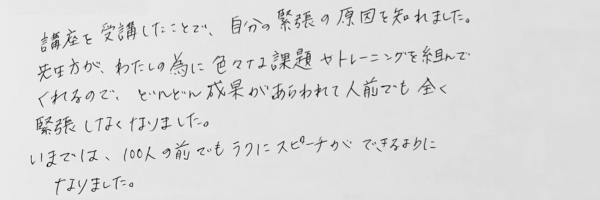 講座を受講したことで、自分の緊張の原因を知れました。
先生方が、わたしの為に色々な課題やトレーニングを組んで
くれるので、どんどん成果があらわれて人前でも全く
緊張しなくなりました。
いまでは、100人の前でもラクにスピーチができるように
なりました。